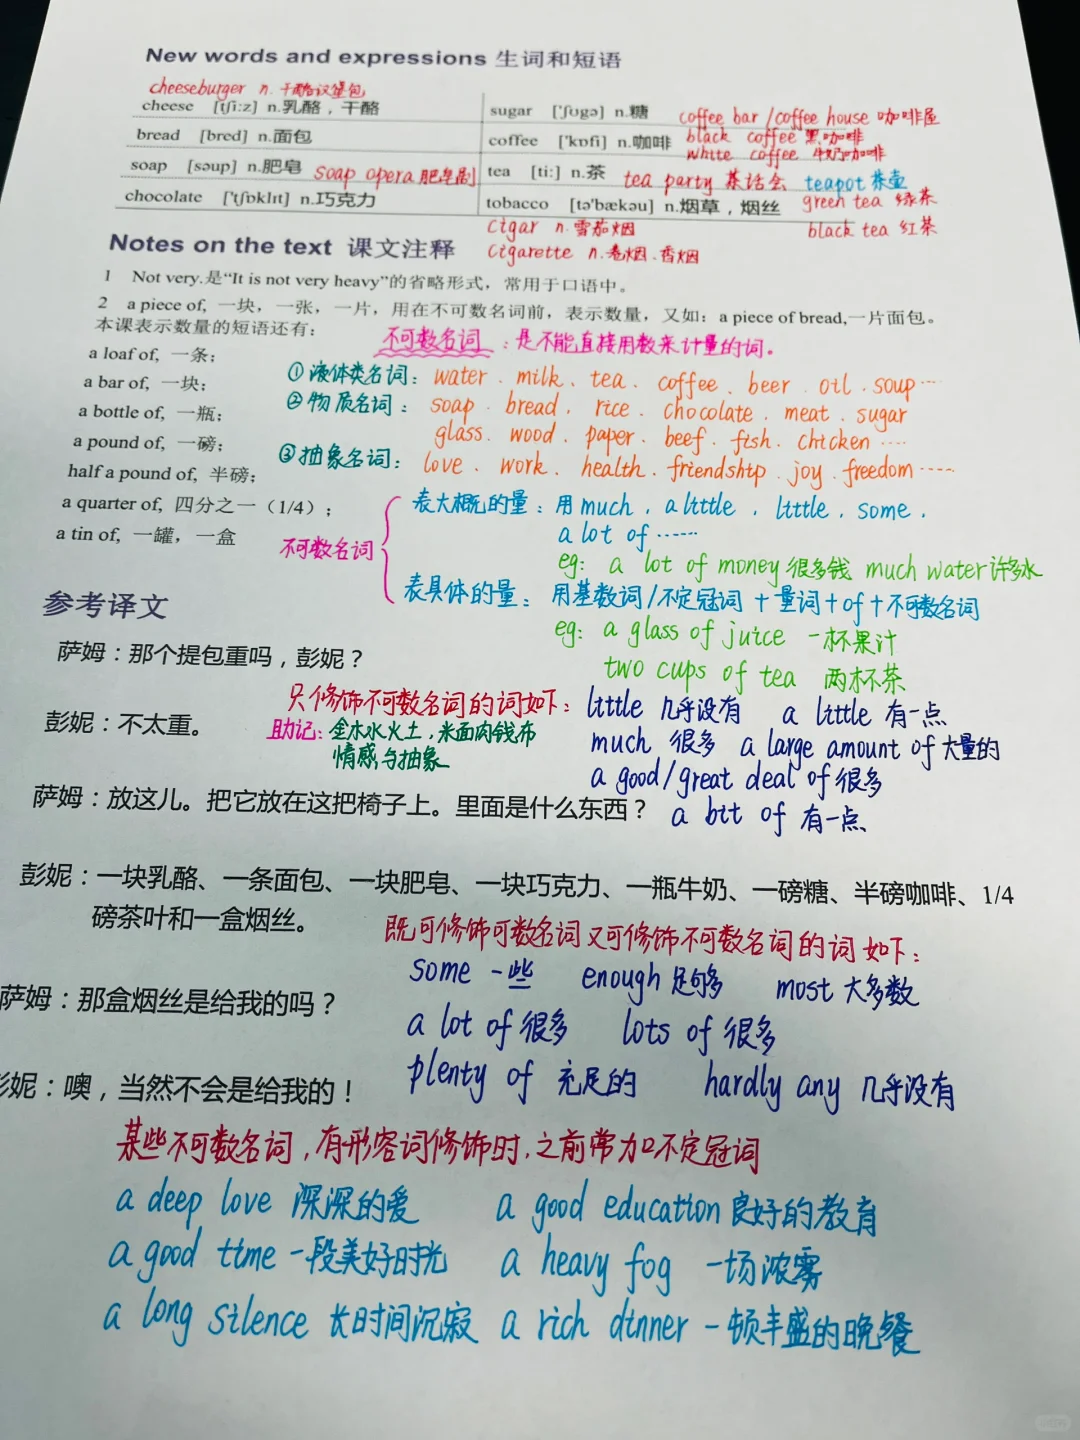 New words and expressions 生词和短语
cheeseburger n. 干酪汉堡包
cheese [tʃi:z] n.乳酪，干酪
sugar ['ʃʊgə] n.糖 coffee bar /coffee house 咖啡屋
bread [bred] n.面包
coffee ['kɒfi] n.咖啡 black coffee 黑咖啡
white coffee 牛奶咖啡
soap [səup] n.肥皂 soap opera 肥皂剧
tea [ti:] n.茶 tea party 茶话会 teapot 茶壶
chocolate ['tʃɒklɪt] n.巧克力
tobacco [tə'bækəu] n.烟草，烟丝 green tea 绿茶
cigar n.雪茄烟 black tea 红茶
cigarette n.卷烟、香烟
Notes on the text 课文注释
1 Not very.是“It is not very heavy”的省略形式，常用于口语中。
2 a piece of, 一块，一张，一片，用在不可数名词前，表示数量，又如：a piece of bread,一片面包。
本课表示数量的短语还有：
不可数名词：是不能直接用数来计量的词。
a loaf of, 一条；
a bar of, 一块；
a bottle of, 一瓶；
a pound of, 一磅；
half a pound of, 半磅；
a quarter of, 四分之一（1/4）；
a tin of, 一罐，一盒
①液体类名词：water、milk、tea、coffee、beer、oil、soup…
②物质名词：soap、bread、rice、chocolate、meat、sugar
glass、wood、paper、beef、fish、chicken ….
③抽象名词：love、work、health、friendship、joy、freedom……
不可数名词
表大概的量：用much、a little、little、some、
a lot of ……
eg: a lot of money 很多钱 much water 许多水
表具体的量：用基数词/不定冠词＋量词＋of＋不可数名词
eg: a glass of juice 一杯果汁
two cups of tea 两杯茶
参考译文
萨姆：那个提包重吗，彭妮？
只修饰不可数名词的词如下：little 几乎没有 a little 有一点
彭妮：不太重。
助记：金木水火土，米面肉钱布
情感与抽象
much 很多 a large amount of 大量的
a good/great deal of 很多
萨姆：放这儿。把它放在这把椅子上。里面是什么东西？
a bit of 有一点
彭妮：一块乳酪、一条面包、一块肥皂、一块巧克力、一瓶牛奶、一磅糖、半磅咖啡、1/4
磅茶叶和一盒烟丝。
既可修饰可数名词又可修饰不可数名词的词如下：
some 一些 enough 足够 most 大多数
萨姆：那盒烟丝是给我的吗？
a lot of 很多 lots of 很多
plenty of 充足的 hardly any 几乎没有
彭妮：噢，当然不会是给我的！
某些不可数名词，有形容词修饰时，之前常加不定冠词
a deep love 深深的爱 a good education 良好的教育
a good time 一段美好时光 a heavy fog 一场浓雾
a long silence 长时间沉寂 a rich dinner 一顿丰盛的晚餐